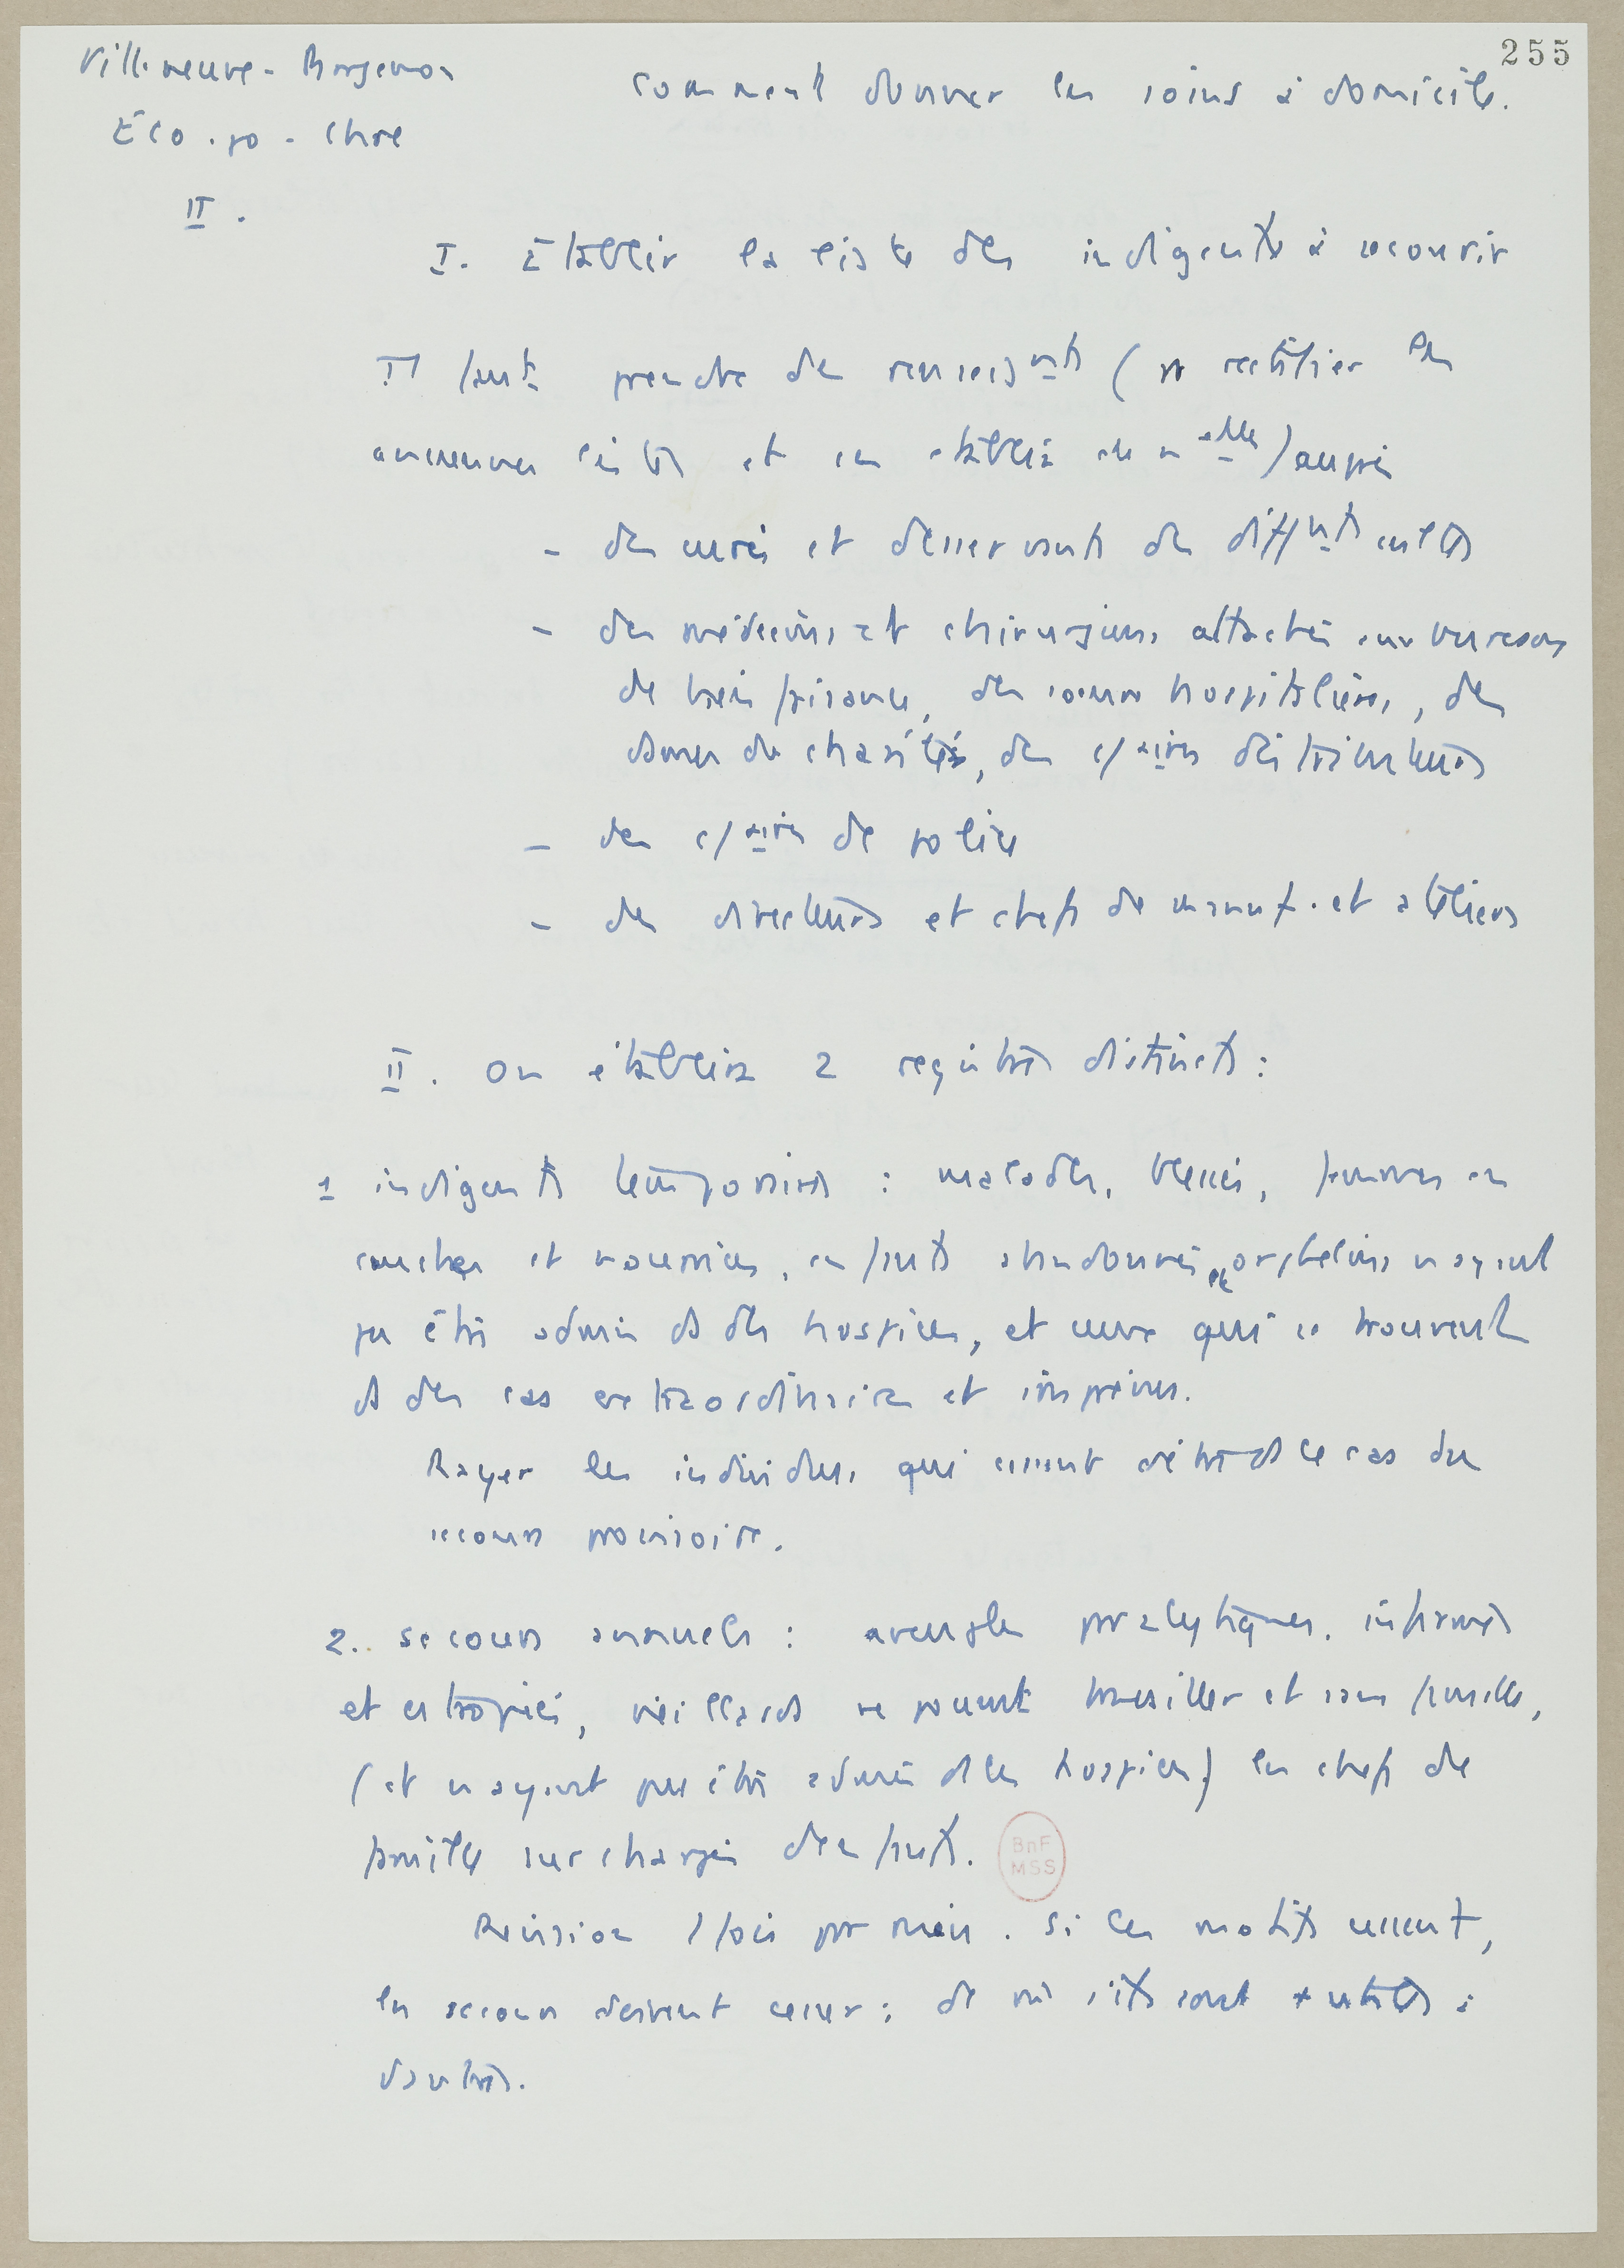 255
Villeneuve-Bargemon
Éco. po. Chre
II.
Comment donner les soins à domicile.
I. Établir la liste des indigents à secourir
Il faut prendre des renseisnts (pr rectifier les
anciennes listes et en établir de nelles) auprès
- des curés et desservants des difffnts cultes
- des médecins et chirurgiens attachés aux bureaux
de bienfaisance, des soeurs hospitalières, des
dames de charité, des c/aires distributeurs
- des c/aires de police
- des directeurs et chefs de manuf. et ateliers
II. On établira 2 registres distincts :
1 indigents temporaires : malades, blessés, femmes en
couches et nourrices, enfants abandonnés et orphelins n'ayant
pu être admis ds des hospices, et ceux qui se trouvent
ds des cas extraordinaires et imprévus.
Rayer les individus qui cessent d'être ds le cas du
secours provisoire.
2. secours annuels : aveugles paralytiques, infirmes
et estropiés, vieillards ne pouvant travailler et sans famille,
(et n'ayant pu être admis ds les hospices) les chefs de
famille surchargés d'enfants.
Révision 1 fois par mois. Si les motifs cessent,
les secours doivent cesser : de m s'ils sont + utiles à
d'autres.
BnF
MSS